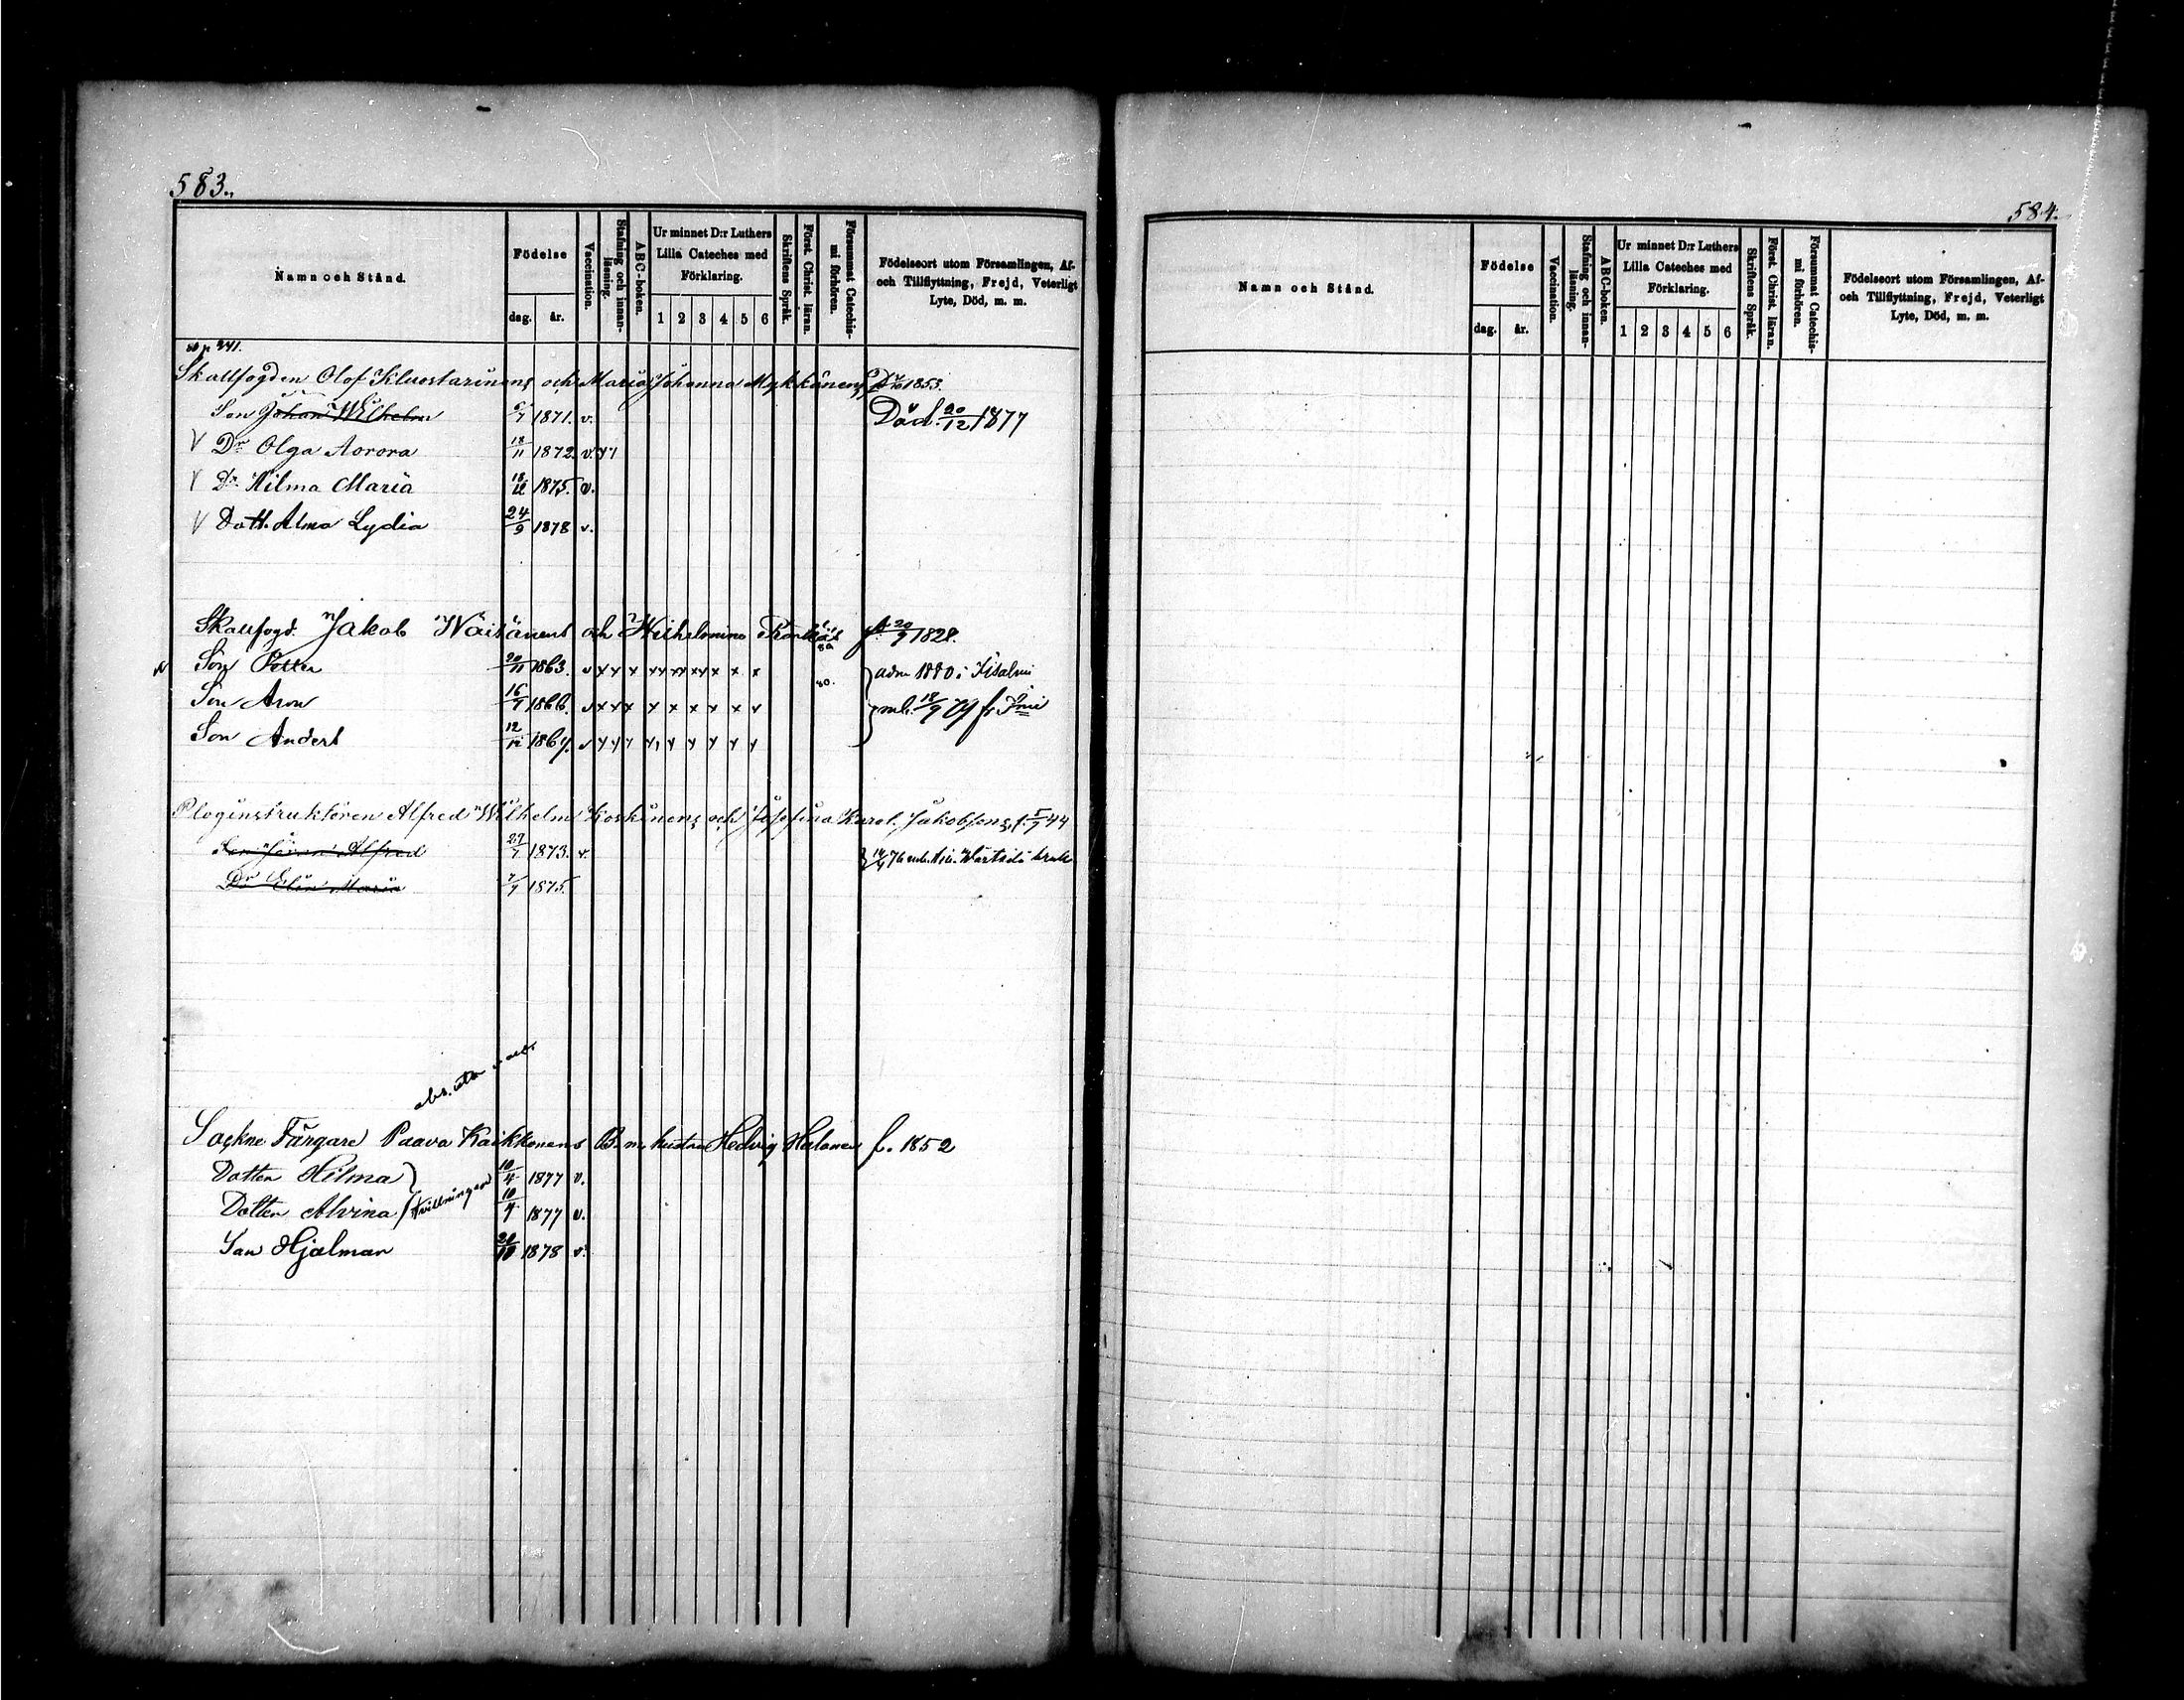 583.
Namn och Stånd.
Födelse
dag.
år.
Vaccination.
Stafning och innanläsning.
ABC-boken.
Ur minnet D:r Luthers
Lilla Cateches med
Förklaring.
1 2 3 4 5 6
Skriftens Språk.
Först. Christ. läran.
Försummat Catechismi förhören.
Födelseort utom Församlingen, Af-
och Tillflyttning, Frejd, Veterligt
Lyte, Död, m. m.
p 241.
Skattfogden Olof och Maria Johanna Mykkänens 1853.
Son Johan Wilhelm 6/7 1871. v. Död. 20/12 1877
V Dr Olga Aorora 18/11 1872. v. x1
V Dr Hilma Maria 1875. v.
V Dott. Alma Lydia 24/9 1878 v.
Skattfogd. Jakob Wäisänens och Wilhelmina f. 20/7 1828.
Son Petter 1863. v x x x xx xx xx x x x 80 adm 1880 i Iisalmi
Son Aron 16/7 1866. v x x x x x x x x x 80. 18/9 79 fr
Son Anders 12/12 v x x x x x x x x x
Ploginstruktören Alfred Wilhelm Koskinens och Josefina Karol. Jakobsens, f. 5/7 44
Son Johan Alfred 27/7 1873. v. 76 Wärtsilä bruk
Dr Elin Maria 7/7 1875.
abs. utan
Sockne Färgare Paava Kaikkonens B. m. hustru Hedvig Halonen f. 1852
Dotter Hilma 10/4 1877 v.
Dotter Alvina tvillningar 10/4 1877 v.
Son Hjalmar 20/10 1878 v.
584.
Namn och Stånd.
Födelse
dag.
år.
Vaccination.
Stafning och innanläsning.
ABC-boken.
Ur minnet D:r Luthers
Lilla Cateches med
Förklaring.
1 2 3 4 5 6
Skriftens Språk.
Först. Christ. läran.
Försummat Catechismi förhören.
Födelseort utom Församlingen, Af-
och Tillflyttning, Frejd, Veterligt
Lyte, Död, m. m.